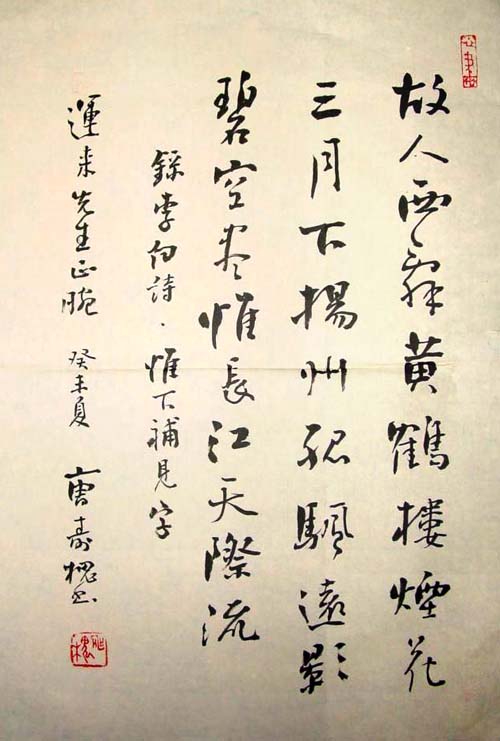 故人西辞黄鶴樓煙花
三月下揚州孤颿遠影
碧空尽惟長江天際流
録李白詩·惟下補見字
運来先生正腕 癸未夏 唐寿槐书